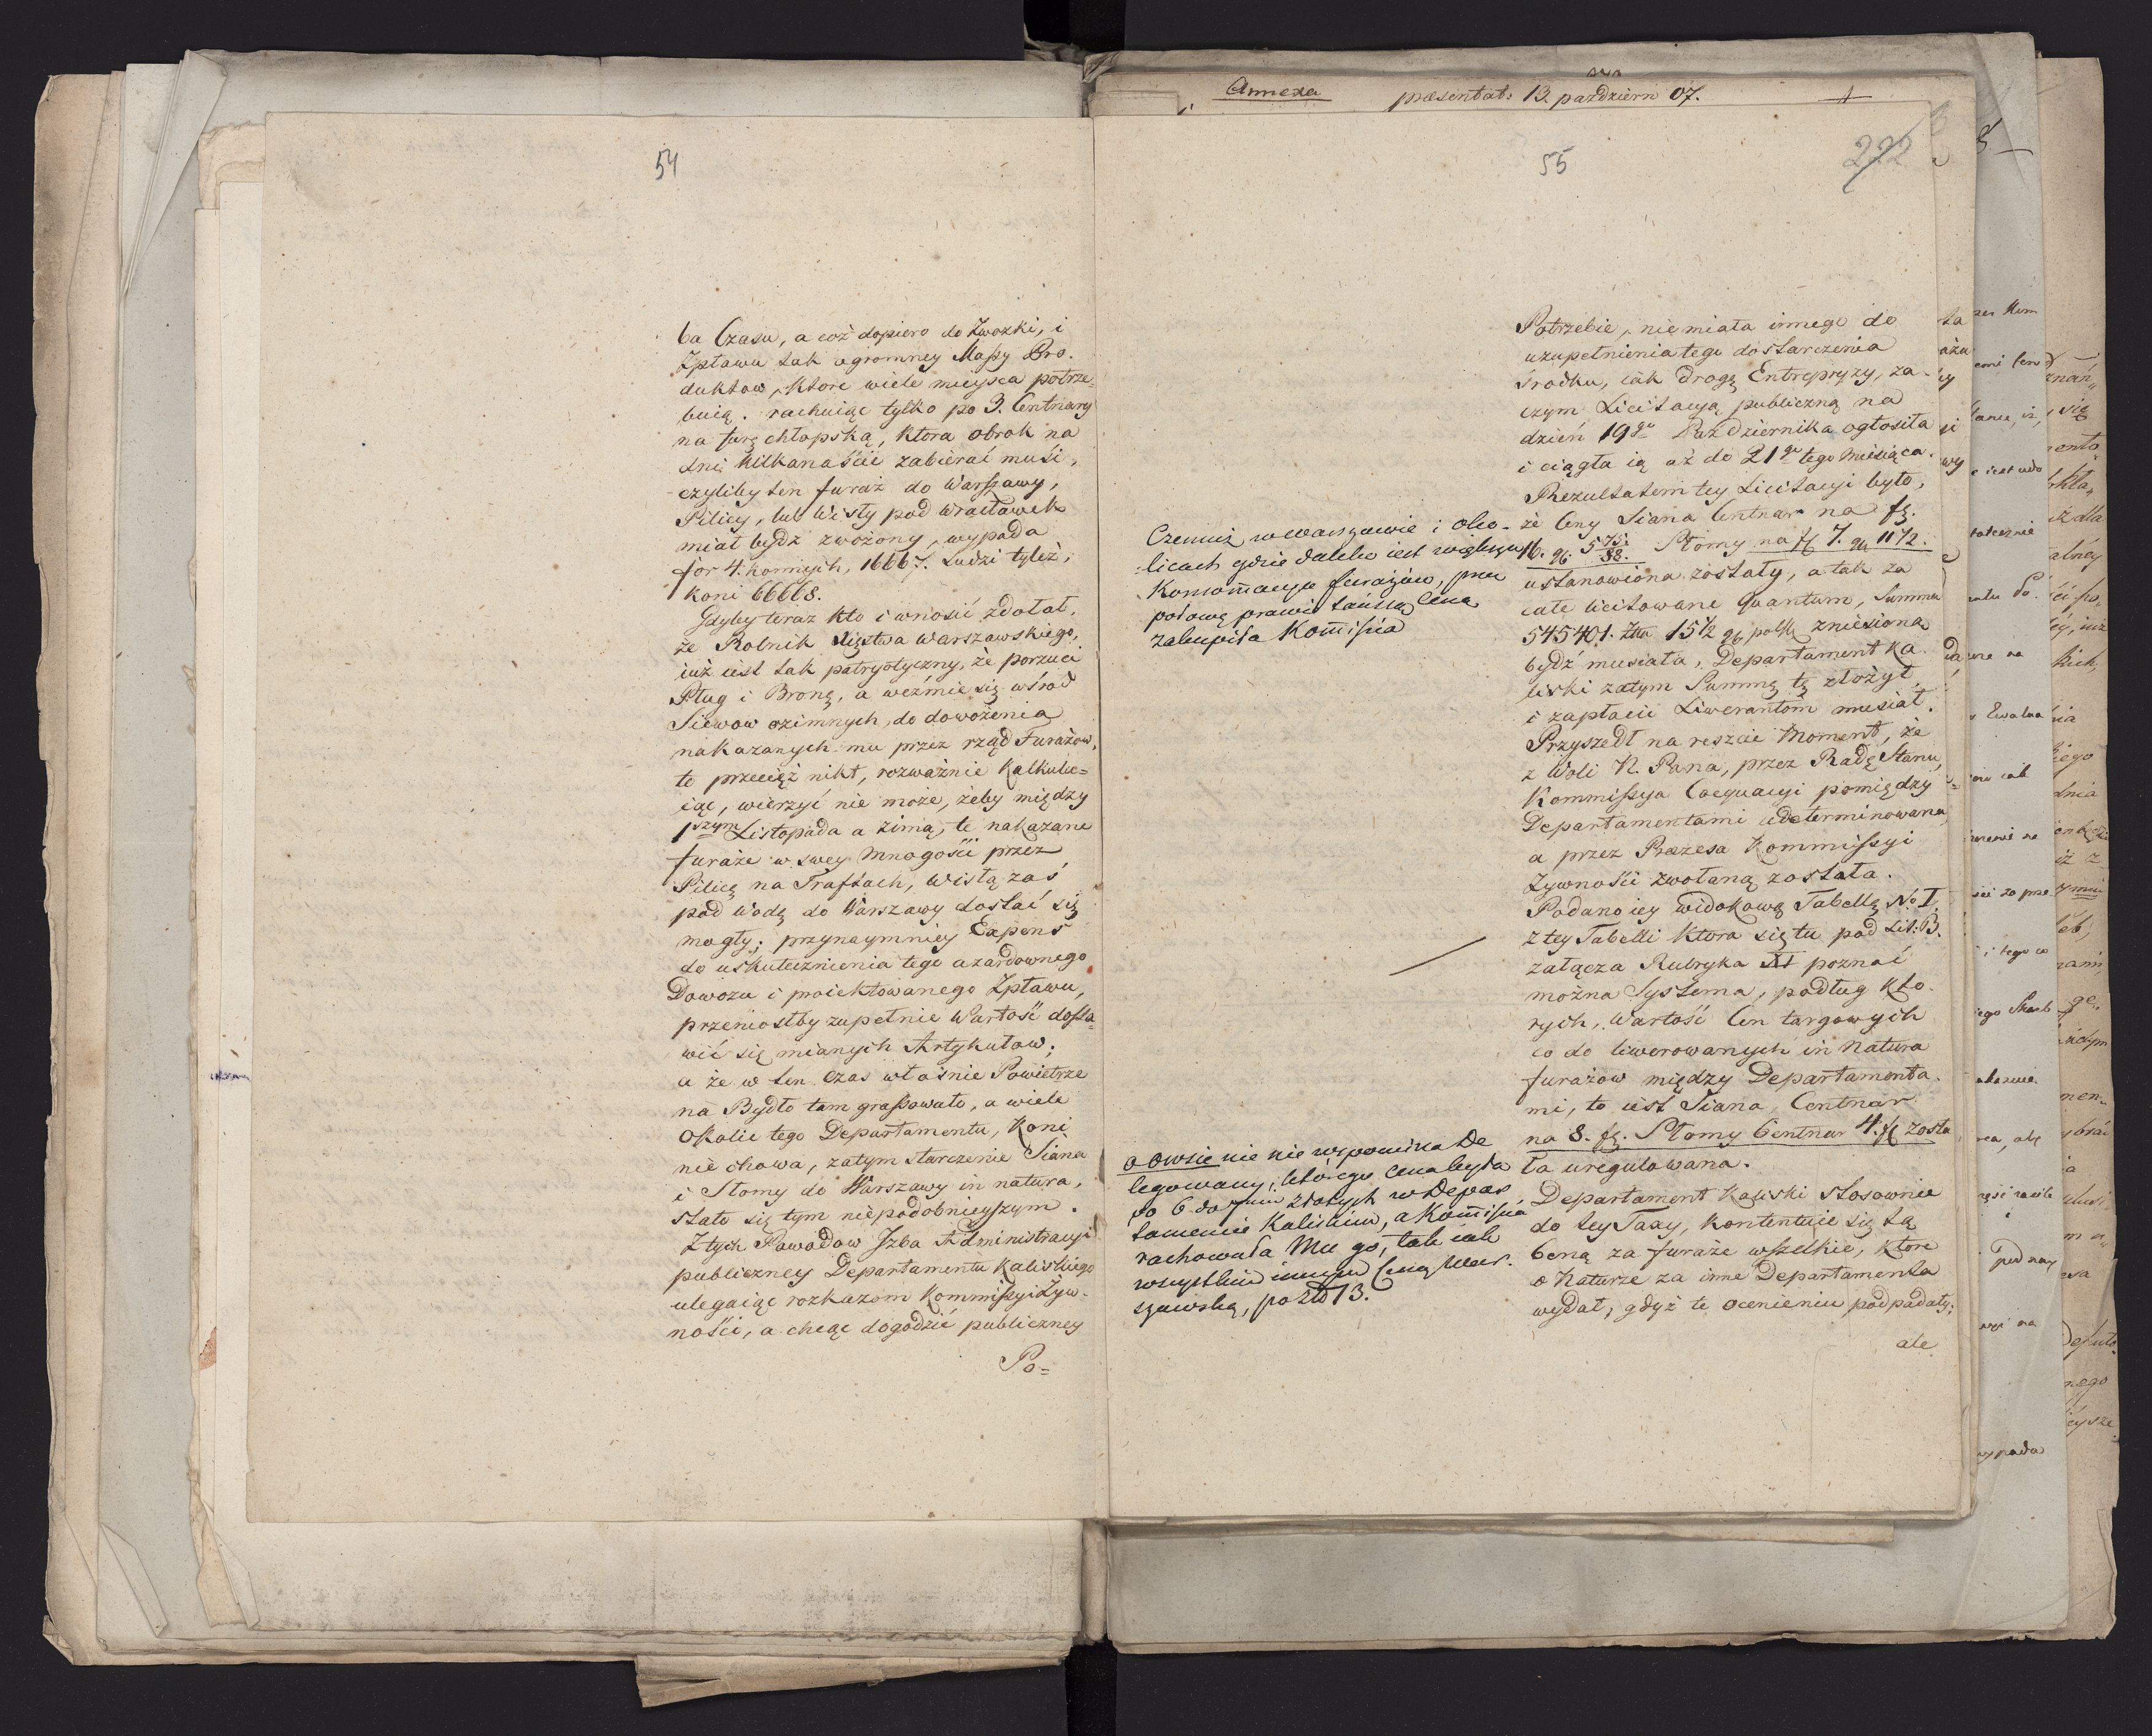 Annexa praesentat: 13 październ 07.
54
ba Czasu, a coż dopiero do Zwozki, i
Zpławu tak ogromney Massy Pro-
duktow, ktore wiele mieysca potrze-
buią. rachuiąc tylko po 3. Centnary
na furę chłopską, ktora obrok na
dni kilkanaście zabierać musi,
czyliby ten furaż do Warszawy,
Pilicy, lub Wisły pod Wracławek
miał bydź zwożony, wypada
for 4. konnych, 16667. Ludzi tyleż,
koni 66668.
Gdyby teraz kto i wnosić zdołał,
że Rolnik Xięstwa Warszawskiego,
iuż iest tak patryotyczny, że porzuci
Pług i Bronę, a weźmie się wśrod
Siewow ozimnych, do dowożenia
nakazanych mu przez rząd Furażow,
to przecięż nikt, rozważnie kalkulu-
iąc, wierzyć nie może, żeby między
1szym Listopada a Zimą, te nakazane
furaże w swey mnogości przez
Pilicę na Traftach, Wisłą zaś
pod Wodę do Warszawy dostać się
mogły; przynaymniey Expens
do uskutecznienia tego azardownego
Dowozu i proiektowanego Zpławu,
przeniosłby zupełnie Wartość dosta-
wić się mianych Artykułow;
a że w ten Czas właśnie Powietrze
na Bydło tam grassowało, a wiele
Okolic tego Departamentu, Koni
nie chowa, zatym starczenie Siana
i Słomy do Warszawy in natura,
stało się tym niepodobnieyszym.
Z tych Powodow Izba Administracyi
publiczney Departamentu Kaliskiego
ulegaiąc rozkazom Kommissyi Żyw-
ności, a chcąc dogodzić publiczney
Po=
55
222
Potrzebie, nie miała innego do
uzupełnienia tego dostarczenia
środku, iak drogę Entrepryzy, za-
czym Licitacyą publiczną na
dzień 19go Października ogłosiła
i ciągła ią aż do 21go tego Miesiąca.
Rezultatem tey Licitacyi było,
że Ceny Siana Centnar na fl.
16. gl. 5 75/88. Słomy na fl 7. gl 11 1/2.
ustanowiona zostały, a tak za
całe licitowane Quantum, Summa
545401. Złtt 15 1/2 gl, polsk zniesioną
bydź musiała, Departament Ka-
liski zatym Summę tę złożyć,
i zapłacić Liwerantom musiał.
Przyszedł na reszcie Moment, że
z Woli N. Pana, przez Radę Stanu,
Kommissya Coequacyi pomiędzy
Departamentami udeterminowana,
a przez Prezesa Kommissyi
Żywności zwołaną została.
Podano iey widokową Tabellę No I.
z tey Tabelli ktora się tu pod Lit: B.
załącza Rubryka XI poznać
można Systema, podług kto-
rych, Wartość Cen targowych
co do liwerowanych in Natura
furażow między Departamenta-
mi, to iest Siana, Centnar
na 8. fl. Słomy Centnar 4. fl zosta
ła uregulowana.
Departament Kaliski stosownie
do tey Taxy, kontentuie się tą
Ceną za furaże wszelkie, ktore
o Naturze za inne Departamenta
wydał, gdyż te ocenieniu podpadały;
ale
Czemuż w Warszawie i oko-
licach gdzie daleko iest większa
Konsomacya furażów, przez
połowę prawie tańszą Ceną
zakupiła Komissia
o Owsie nic nie wspomina De
legowany, którego Cena była
po 6. do 7miu złotych w Depar
tamencie Kaliskim, a Komissia
rachowała Mu go, tak iak
wszystkim innym Ceną War-
szawską, po złt 13.